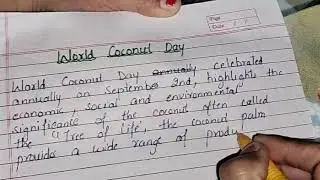 Page
Date / /
World Coconut Day
World Coconut Day celebrated
annually on September 2nd, highlights the
economic, social and environmental
significance of the coconut often called
the "Tree of life", the coconut palm
provide a wide range of produ